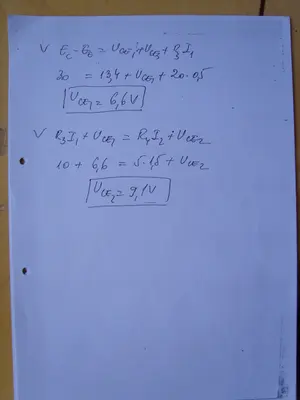 V E_C - E_B = U_CE1 + U_CE3 + R_3 I_1
30 = 13,4 + U_CE1 + 20 · 0,5
U_CE1 = 6,6 V
V R_3 I_1 + U_CE1 = R_4 I_2 + U_CE2
10 + 6,6 = 5 · 1,5 + U_CE2
U_CE2 = 9,1 V